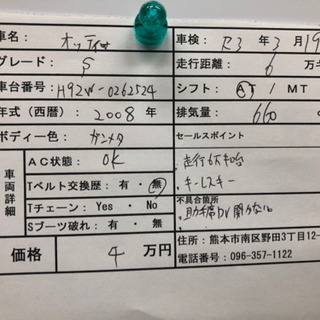 車名: オッティ
車検: R3 年 3 月 19
グレード: S
走行距離: 6 万キ
車台番号: H92W-0262524
シフト: AT / MT
年式(西暦): 2008 年
排気量: 660
ボディー色: ガンメタ
セールスポイント
車両詳細
AC状態: OK
・走行6万キロ台
Tベルト交換歴: 有・無
・キーレスキー
Tチェーン: Yes・No
不具合箇所
Sブーツ破れ: 有・無
・助手席DV開かない
価格 4 万円
住所: 熊本市南区野田3丁目12-
電話番号: 096-357-1122